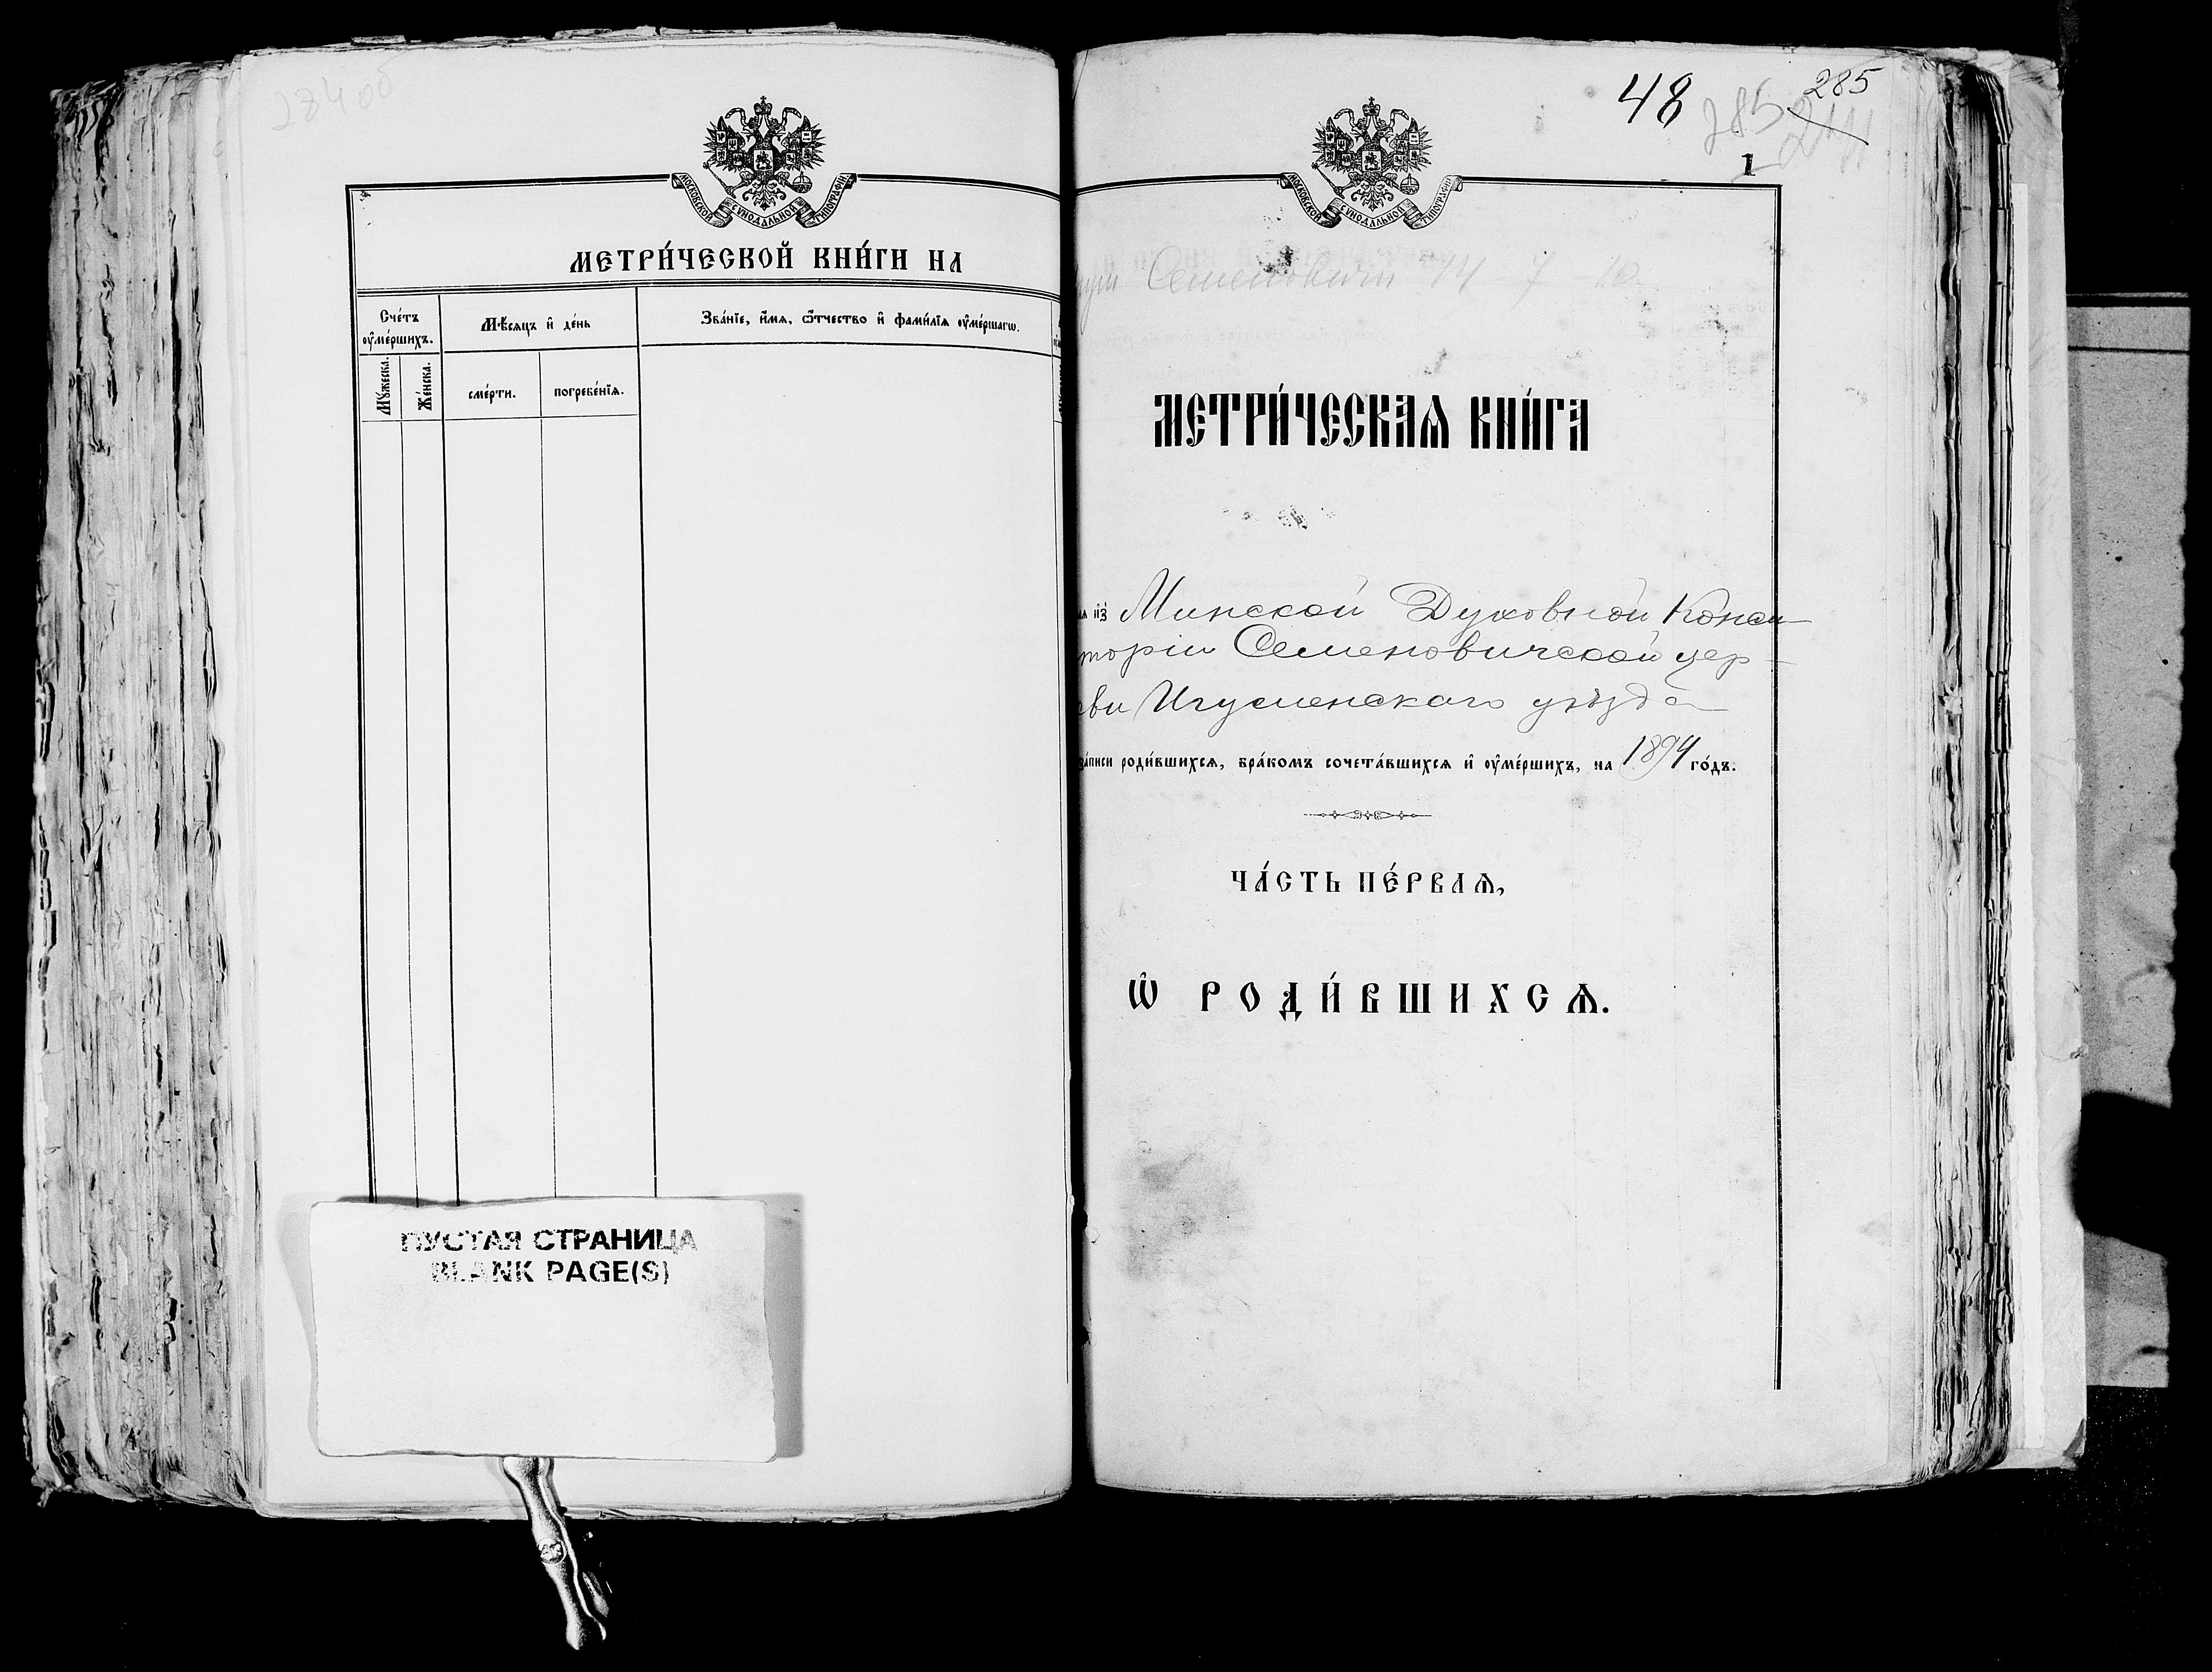 284об
МОСКОВСКОЙ СѴНОДАЛЬНОЙ ТИПОГРАФІИ
МЕТРИ́ЧЕСКОЙ КНИ́ГИ НА
Сче́тъ ᲂу҆ме́ршихъ.
Мꙋ́жеска.
Же́нска.
Мѣ́сѧцъ и҆ де́нь
сме́рти.
погребе́нїѧ.
Зва́нїе, и҆́мѧ, ѻ҆́тчество и҆ фами́лїѧ ᲂу҆ме́ршагѡ.
ПУСТАЯ СТРАНИЦА
BLANK PAGE(S)
48
285
285
1
МОСКОВСКОЙ СѴНОДАЛЬНОЙ ТИПОГРАФІИ
Семеновичи 14 7 10
МЕТРИ́ЧЕСКАѦ КНИ́ГА
и҆з̾ Минской Духовной Конси
торіи Семеновичской цер-
кви Игуменскаго уѣзда
за́писи роди́вшихсѧ, бра́комъ сочета́вшихсѧ и҆ ᲂу҆ме́ршихъ, на 1894 го́дъ.
ЧА́СТЬ ПЕ́РВАѦ,
Ѡ҆ РОДИ́ВШИХСѦ.